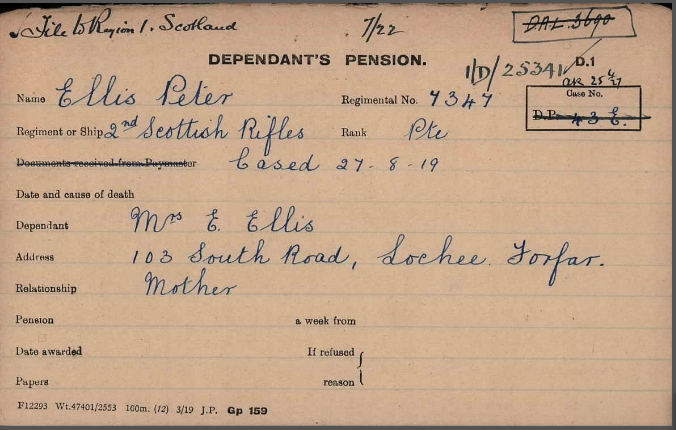 File to Region 1. Scotland 7/22 DAL 3690
DEPENDANT'S PENSION.
1/D/25341 D.1
Name Ellis Peter Regimental No. 7347 Case No.
Regiment or Ship 2nd Scottish Rifles Rank Pte D.P. 43 E.
Documents received from Paymaster Cased 27-8-19
Date and cause of death
Dependant Mrs E. Ellis
Address 103 South Road, Lochee Forfar.
Relationship Mother
Pension a week from
Date awarded If refused
Papers reason
F12293 Wt.47401/2553 100m. (12) 3/19 J.P. Gp 159